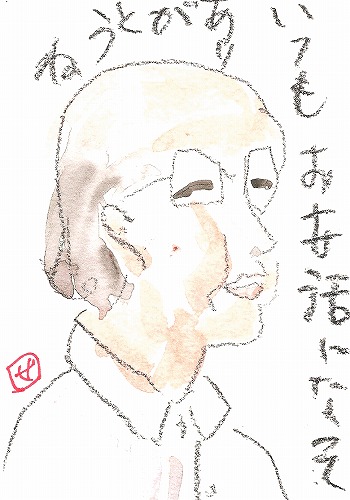 いつもお世話になって
ありがとうね
せ